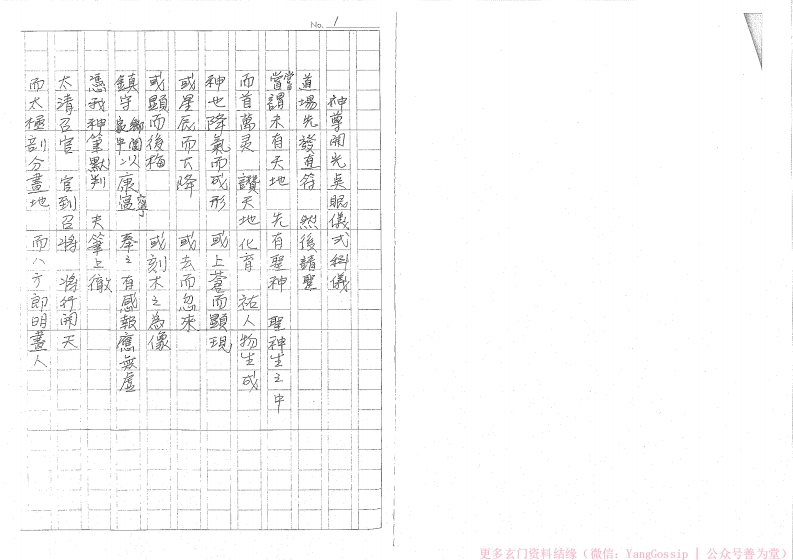 No. 1
神尊開光点眼儀式科儀
道場先發直符　然後請聖
嘗謂未有天地　先有聖神　聖神生之中
而首萬灵　讚天地化育　祐人物生成
神也降氣而成形　或上蒼而顯現
或星辰而下降　或去而忽來
或顯而後梅　或刻木之為像
鎮守鄉閭以康寧　奉之有感報應無虛
憑我神筆默判　夫筆上徹
太清召官　官到召將　將行開天
而太極剖分畫地　而八方郎明畫人
更多玄门资料结缘（微信：YangGossip | 公众号善为堂）